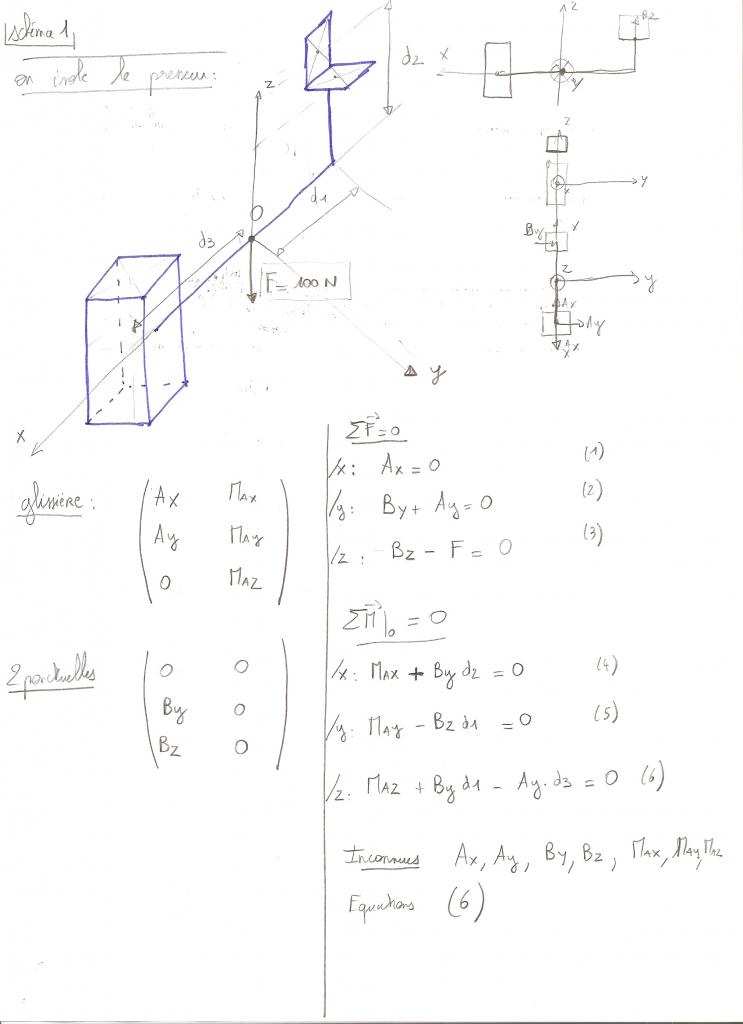 schéma 1
on isole le presseur:
z
d2
O
d1
d3
F = 100 N
y
x
z
Bz
x
y
z
x
y
By
x
z
y
Ax
Ay
x
Ax
glissière :
Ax MAx
Ay MAy
O MAz
2 ponctuelles
O O
By O
Bz O
ΣF=0
/x: Ax = 0 (1)
/y: By + Ay = 0 (2)
/z: Bz - F = 0 (3)
ΣM|o = 0
/x: MAx + By d2 = 0 (4)
/y: MAy - Bz d1 = 0 (5)
/z: MAz + By d1 - Ay. d3 = 0 (6)
Inconnues Ax, Ay, By, Bz, MAx, MAy, MAz
Equations (6)